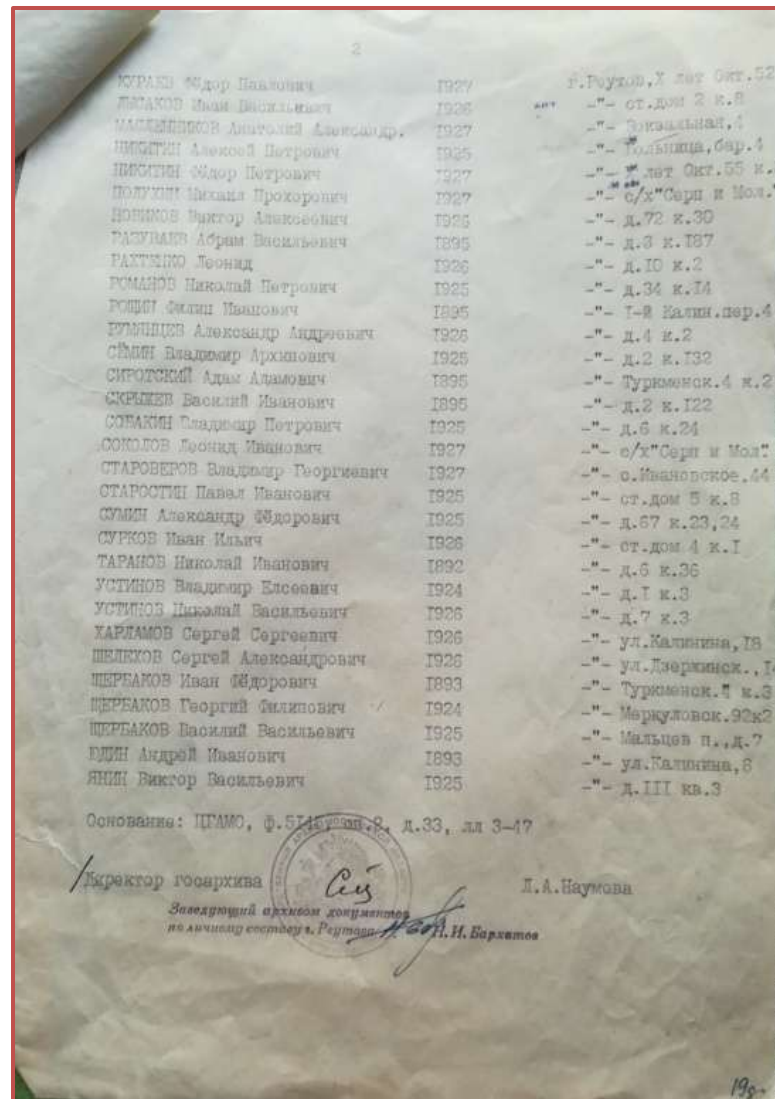 2
КУРАЕВ Фёдор Павлович 1927 г.Реутов,X лет Окт.52
ЛЫСАКОВ Иван Васильевич 1926 -"- ст.дом 2 к.8
МАСЛЕННИКОВ Анатолий Александр. 1927 -"- Вокзальная,4
НИКИТИН Алексей Петрович 1925 -"- Гольница,бар.4
НИКИТИН Фёдор Петрович 1927 -"- лет Окт.55 к.
ПОЛУХИН Михаил Прохорович 1927 -"- с/х"Серп и Мол."
НОВИКОВ Виктор Алексеевич 1926 -"- д.72 к.30
РАЗУВАЕВ Абрам Васильевич 1895 -"- д.3 к.I87
РАХТЕНКО Леонид 1926 -"- д.I0 к.2
РОМАНОВ Николай Петрович 1925 -"- д.34 к.I4
РОЩИН Филип Иванович I895 -"- I-й Калин.пер.4
РУМЯНЦЕВ Александр Андреевич I926 -"- д.4 к.2
СЁМИН Владимир Архипович I925 -"- д.2 к.I32
СИРОТСКИЙ Адам Адамович I895 -"- Туркменск.4 к.2
СКРЫЖЕВ Василий Иванович I895 -"- д.2 к.I22
СОБАКИН Владимир Петрович I925 -"- д.6 к.24
СОКОЛОВ Леонид Иванович I927 -"- с/х"Серп и Мол."
СТАРОВЕРОВ Владимир Георгиевич I927 -"- с.Ивановское,44
СТАРОСТИН Павел Иванович I925 -"- ст.дом 5 к.8
СУМИН Александр Фёдорович I925 -"- д.67 к.23,24
СУРКОВ Иван Ильич I926 -"- ст.дом 4 к.I
ТАРАНОВ Николай Иванович I892 -"- д.6 к.36
УСТИНОВ Владимир Елсеевич I924 -"- д.I к.3
УСТИНОВ Николай Васильевич I926 -"- д.7 к.3
ХАРЛАМОВ Сергей Сергеевич I926 -"- ул.Калинина,I8
ШЕЛЕХОВ Сергей Александрович I926 -"- ул.Дзержинск.,
ЩЕРБАКОВ Иван Фёдорович I893 -"- Туркменск. к.3
ЩЕРБАКОВ Георгий Филипович I924 -"- Меркуловск.92к2
ЩЕРБАКОВ Василий Васильевич I925 -"- Мальцев п.,д.7
ЮДИН Андрей Иванович I893 -"- ул.Калинина,8
ЯНИН Виктор Васильевич I925 -"- д.III кв.3
Основание: ЦГАМО, д.33, лл 3-47
Директор госархива Л.А.Наумова
Заведующий архивом документов
по личному составу г. Реутова Н.И. Бархатов